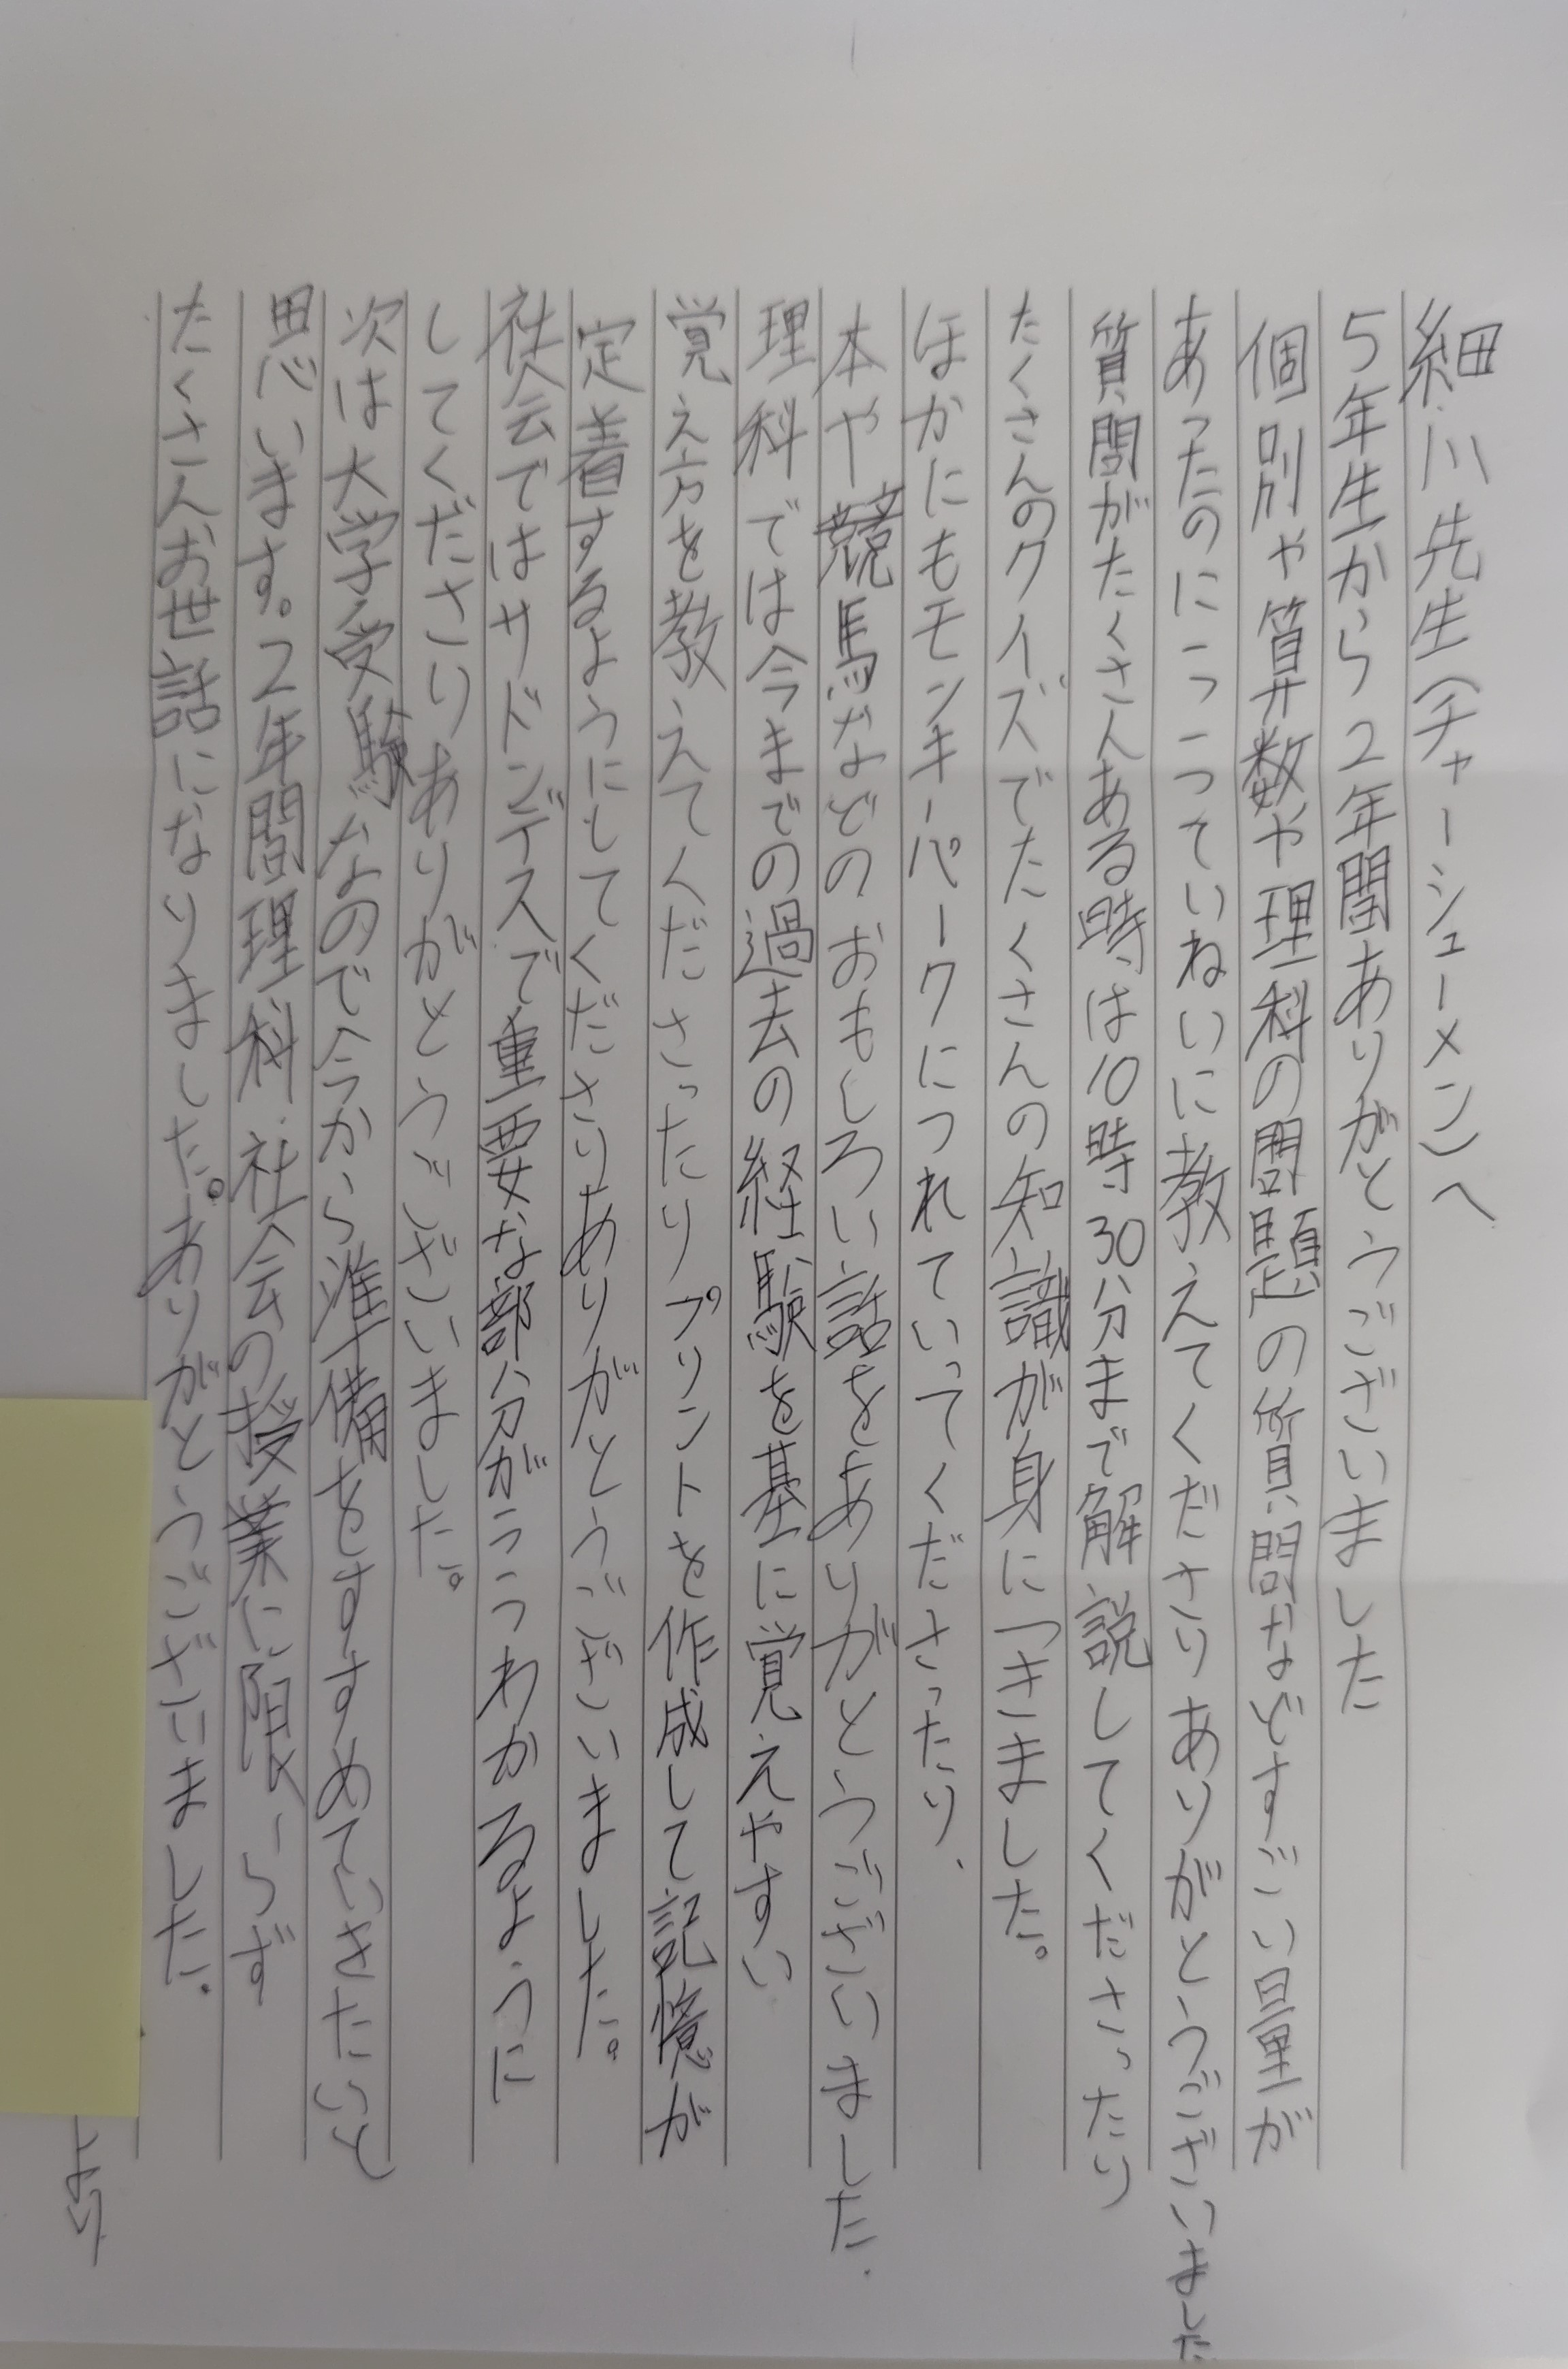 細川先生(チャーシューメン)へ
5年生から2年間ありがとうございました
個別や算数や理科の問題の質問などすごい量が
あったのに一つ一つていねいに教えてくださりありがとうございました
質問がたくさんある時は10時30分まで解説してくださったり
たくさんのクイズでたくさんの知識が身につきました。
ほかにもモンキーパークにつれていってくださったり、
本や競馬などのおもしろい話をありがとうございました.
理科では今までの過去の経験を基に覚えやすい
覚え方を教えてくださったりプリントを作成して記憶が
定着するようにしてくださりありがとうございました。
社会ではサドンデスで重要な部分が一つ一つわかるように
してくださりありがとうございました。
次は大学受験なので今から準備をすすめていきたいと
思います。2年間理科、社会の授業に限らず
たくさんお世話になりました。ありがとうございました。
より